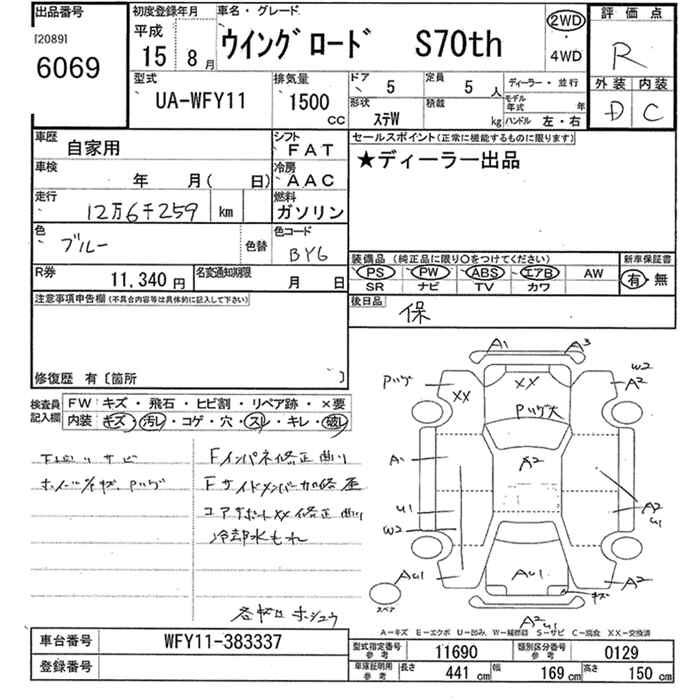 出品番号
[2089]
6069
初度登録年月
平成
15 8月
車名・グレード
ウイングロード S70th
2WD
・
4WD
評価点
R
外装 内装
D C
型式
UA-WFY11
排気量
1500
cc
ドア 5
定員 5 人
ディーラー・並行
形状
ステW
積載
kg
モデル年式 年
ハンドル 左・右
車歴
自家用
シフト
FAT
車検
年 月( 日)
冷房
AAC
走行
12万6千259 km
燃料
ガソリン
色
ブルー
色替
色コード
BY6
R券
11,340 円
名変通知期限
月 日
セールスポイント(正常に機能するものに限ります)
★ディーラー出品
装備品(純正品に限り○をつけてください)
PS PW ABS エアB AW
SR ナビ TV カワ
新車保証書
有・無
後日品
保
注意事項申告欄(不具合内容等は具体的に記入して下さい)
修復歴 有〔箇所 〕
検査員
記入欄
FW キズ・飛石・ヒビ割・リペア跡・×要
内装 キズ・汚レ・コゲ・穴・スレ・キレ・破レ
Fインパネ修正曲り
Fサイドメンバー
コアサポートXX修正曲り
冷却水もれ
A1 A3
W2
A2
XX
XX
A1
A2
U1
W2
A2
U1
AU1
AU1
A2
キズ
スペア
A2
U1
A－キズ E－エクボ U－凹み W－補修跡 S－サビ C－腐食 XX－交換済
車台番号
WFY11-383337
登録番号
型式指定番号
参考
11690
類別区分番号
参考
0129
車庫証明用
参考
長さ 441 cm
幅 169 cm
高さ 150 cm